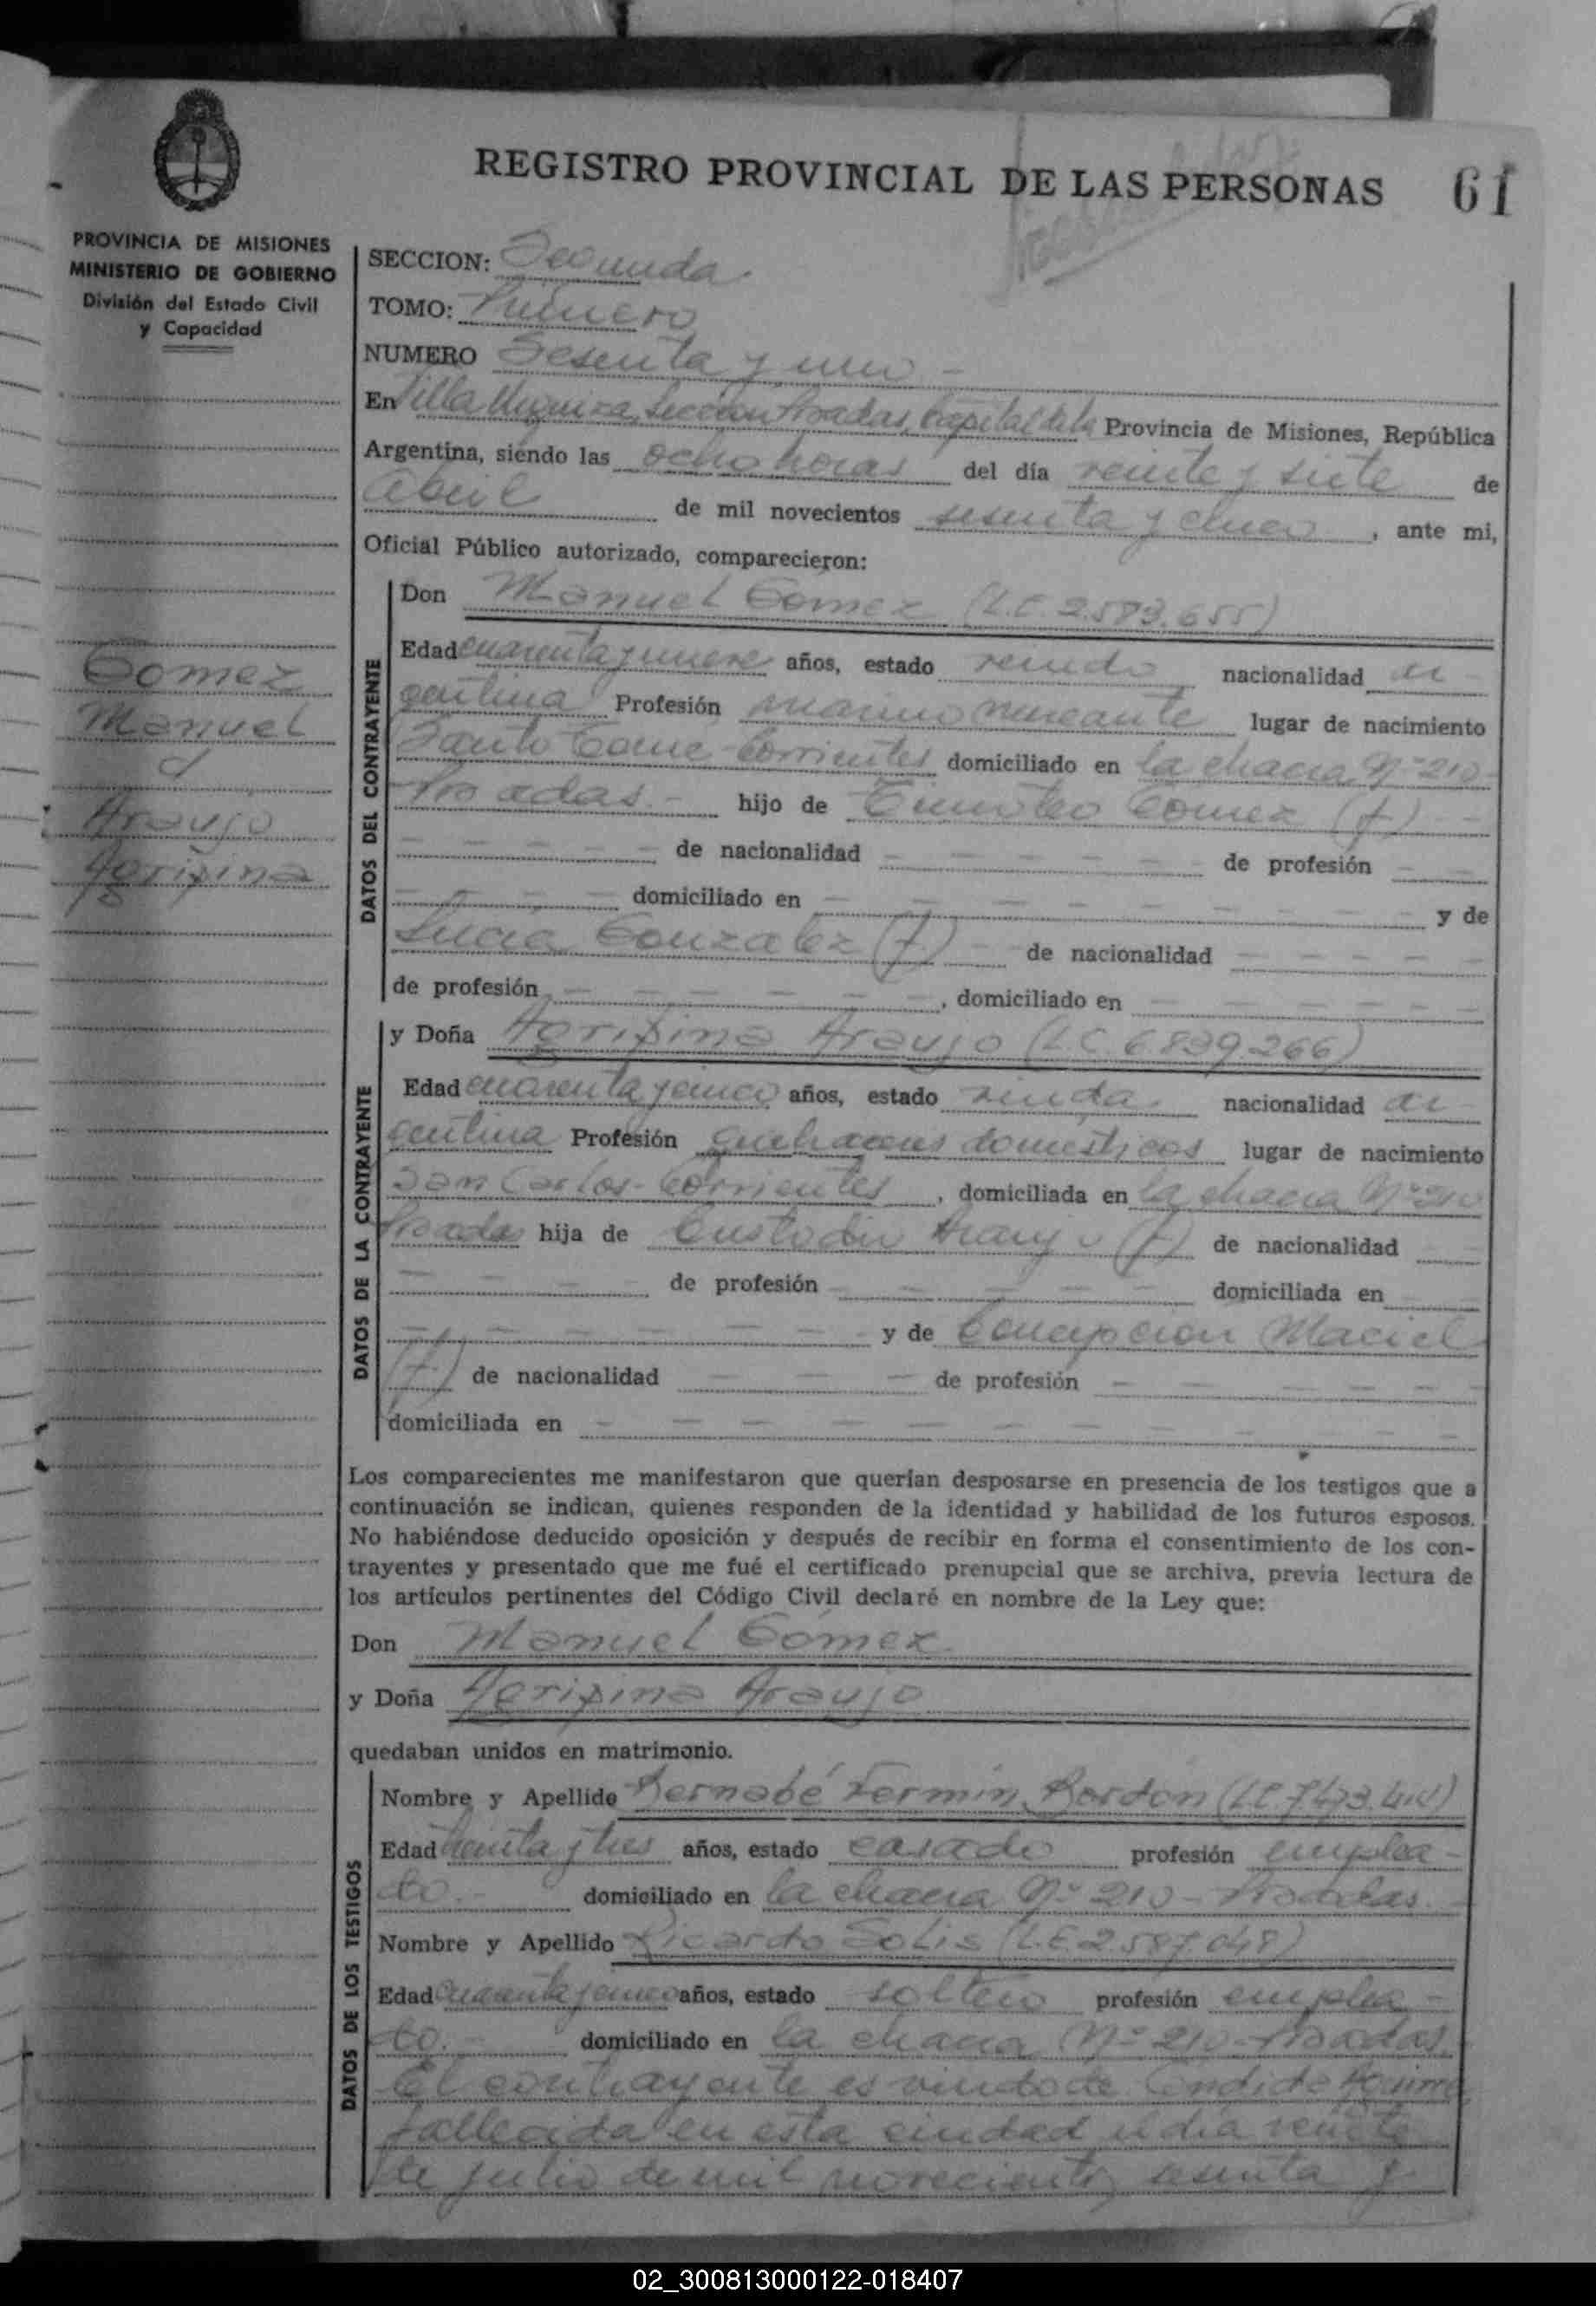 REGISTRO PROVINCIAL DE LAS PERSONAS 61
PROVINCIA DE MISIONES
MINISTERIO DE GOBIERNO
División del Estado Civil
y Capacidad
SECCION: Segunda
TOMO: Primero
NUMERO Sesenta y uno -
En Villa Urquiza, Seccion Posadas, Capital de la Provincia de Misiones, República
Argentina, siendo las ocho horas del día veinte y siete de
abril de mil novecientos sesenta y cinco, ante mi,
Oficial Público autorizado, comparecieron:
Gomez
Manuel
Araujo
Agripina
DATOS DEL CONTRAYENTE
Don Manuel Gomez (L.E. 2.583.655)
Edad cuarenta y nueve años, estado viudo nacionalidad ar-
gentina Profesión marino mercante lugar de nacimiento
Santo Tome - Corrientes domiciliado en la chacra Nº 210 -
Posadas - hijo de Timoteo Gomez (f) - -
de nacionalidad de profesión
domiciliado en y de
Lucia Gonzalez (f) - de nacionalidad
de profesión , domiciliado en
DATOS DE LA CONTRAYENTE
y Doña Agripina Araujo (L.C. 6.839.266)
Edad cuarenta y cinco años, estado viuda nacionalidad ar-
gentina Profesión quehaceres domesticos lugar de nacimiento
San Carlos - Corrientes, domiciliada en la chacra Nº 210
Posadas hija de Custodio Araujo (f) de nacionalidad
de profesión domiciliada en
y de Concepcion Maciel
(f) de nacionalidad de profesión
domiciliada en
Los comparecientes me manifestaron que querían desposarse en presencia de los testigos que a
continuación se indican, quienes responden de la identidad y habilidad de los futuros esposos.
No habiéndose deducido oposición y después de recibir en forma el consentimiento de los con-
trayentes y presentado que me fué el certificado prenupcial que se archiva, previa lectura de
los artículos pertinentes del Código Civil declaré en nombre de la Ley que:
Don Manuel Gómez
y Doña Agripina Araujo
quedaban unidos en matrimonio.
DATOS DE LOS TESTIGOS
Nombre y Apellido Bernabé Fermin Bordón
Edad treinta y tres años, estado casado profesión emplea-
do. - domiciliado en la chacra Nº 210 - Posadas. -
Nombre y Apellido Ricardo Solis (L.E. 2.587.048)
Edad cuarenta y cinco años, estado soltero profesión emplea-
do. - domiciliado en la chacra Nº 210 - Posadas.
El contrayente es viudo de Candida Aguirre
fallecida en esta ciudad el dia veinte
de julio de mil novecientos sesenta y
02_300813000122-018407